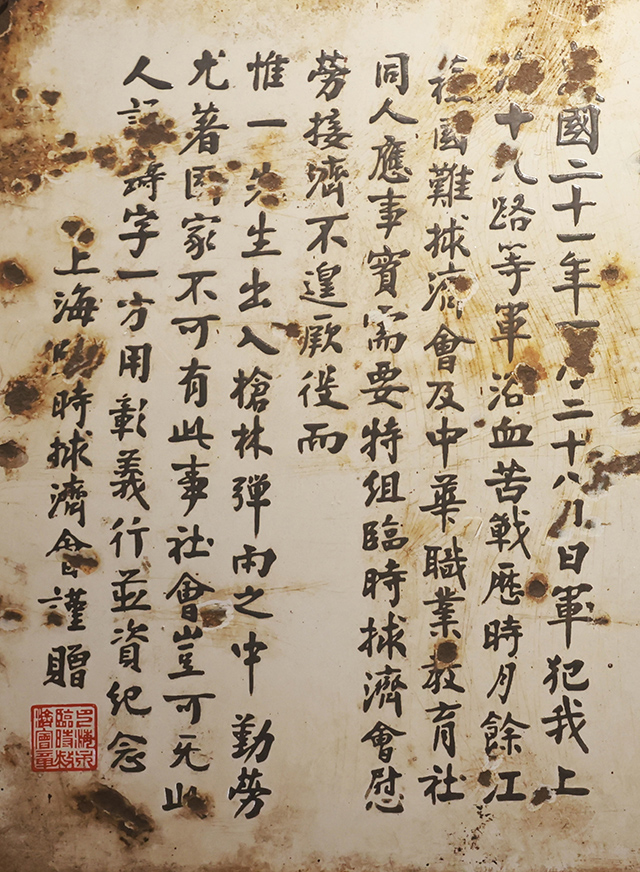 國二十一年一月二十八日日軍犯我上
海十九路等軍浴血苦戰歷時月餘江
蘇國難捄濟會及中華職業教育社
同人應事實需要特組臨時捄濟會慰
勞接濟不遑厥役而
惟一先生出入槍林彈雨之中 勤勞
尤著國家不可有此事社會豈可无此
人字一方用彰義行並資紀念
上海臨時捄濟會謹贈